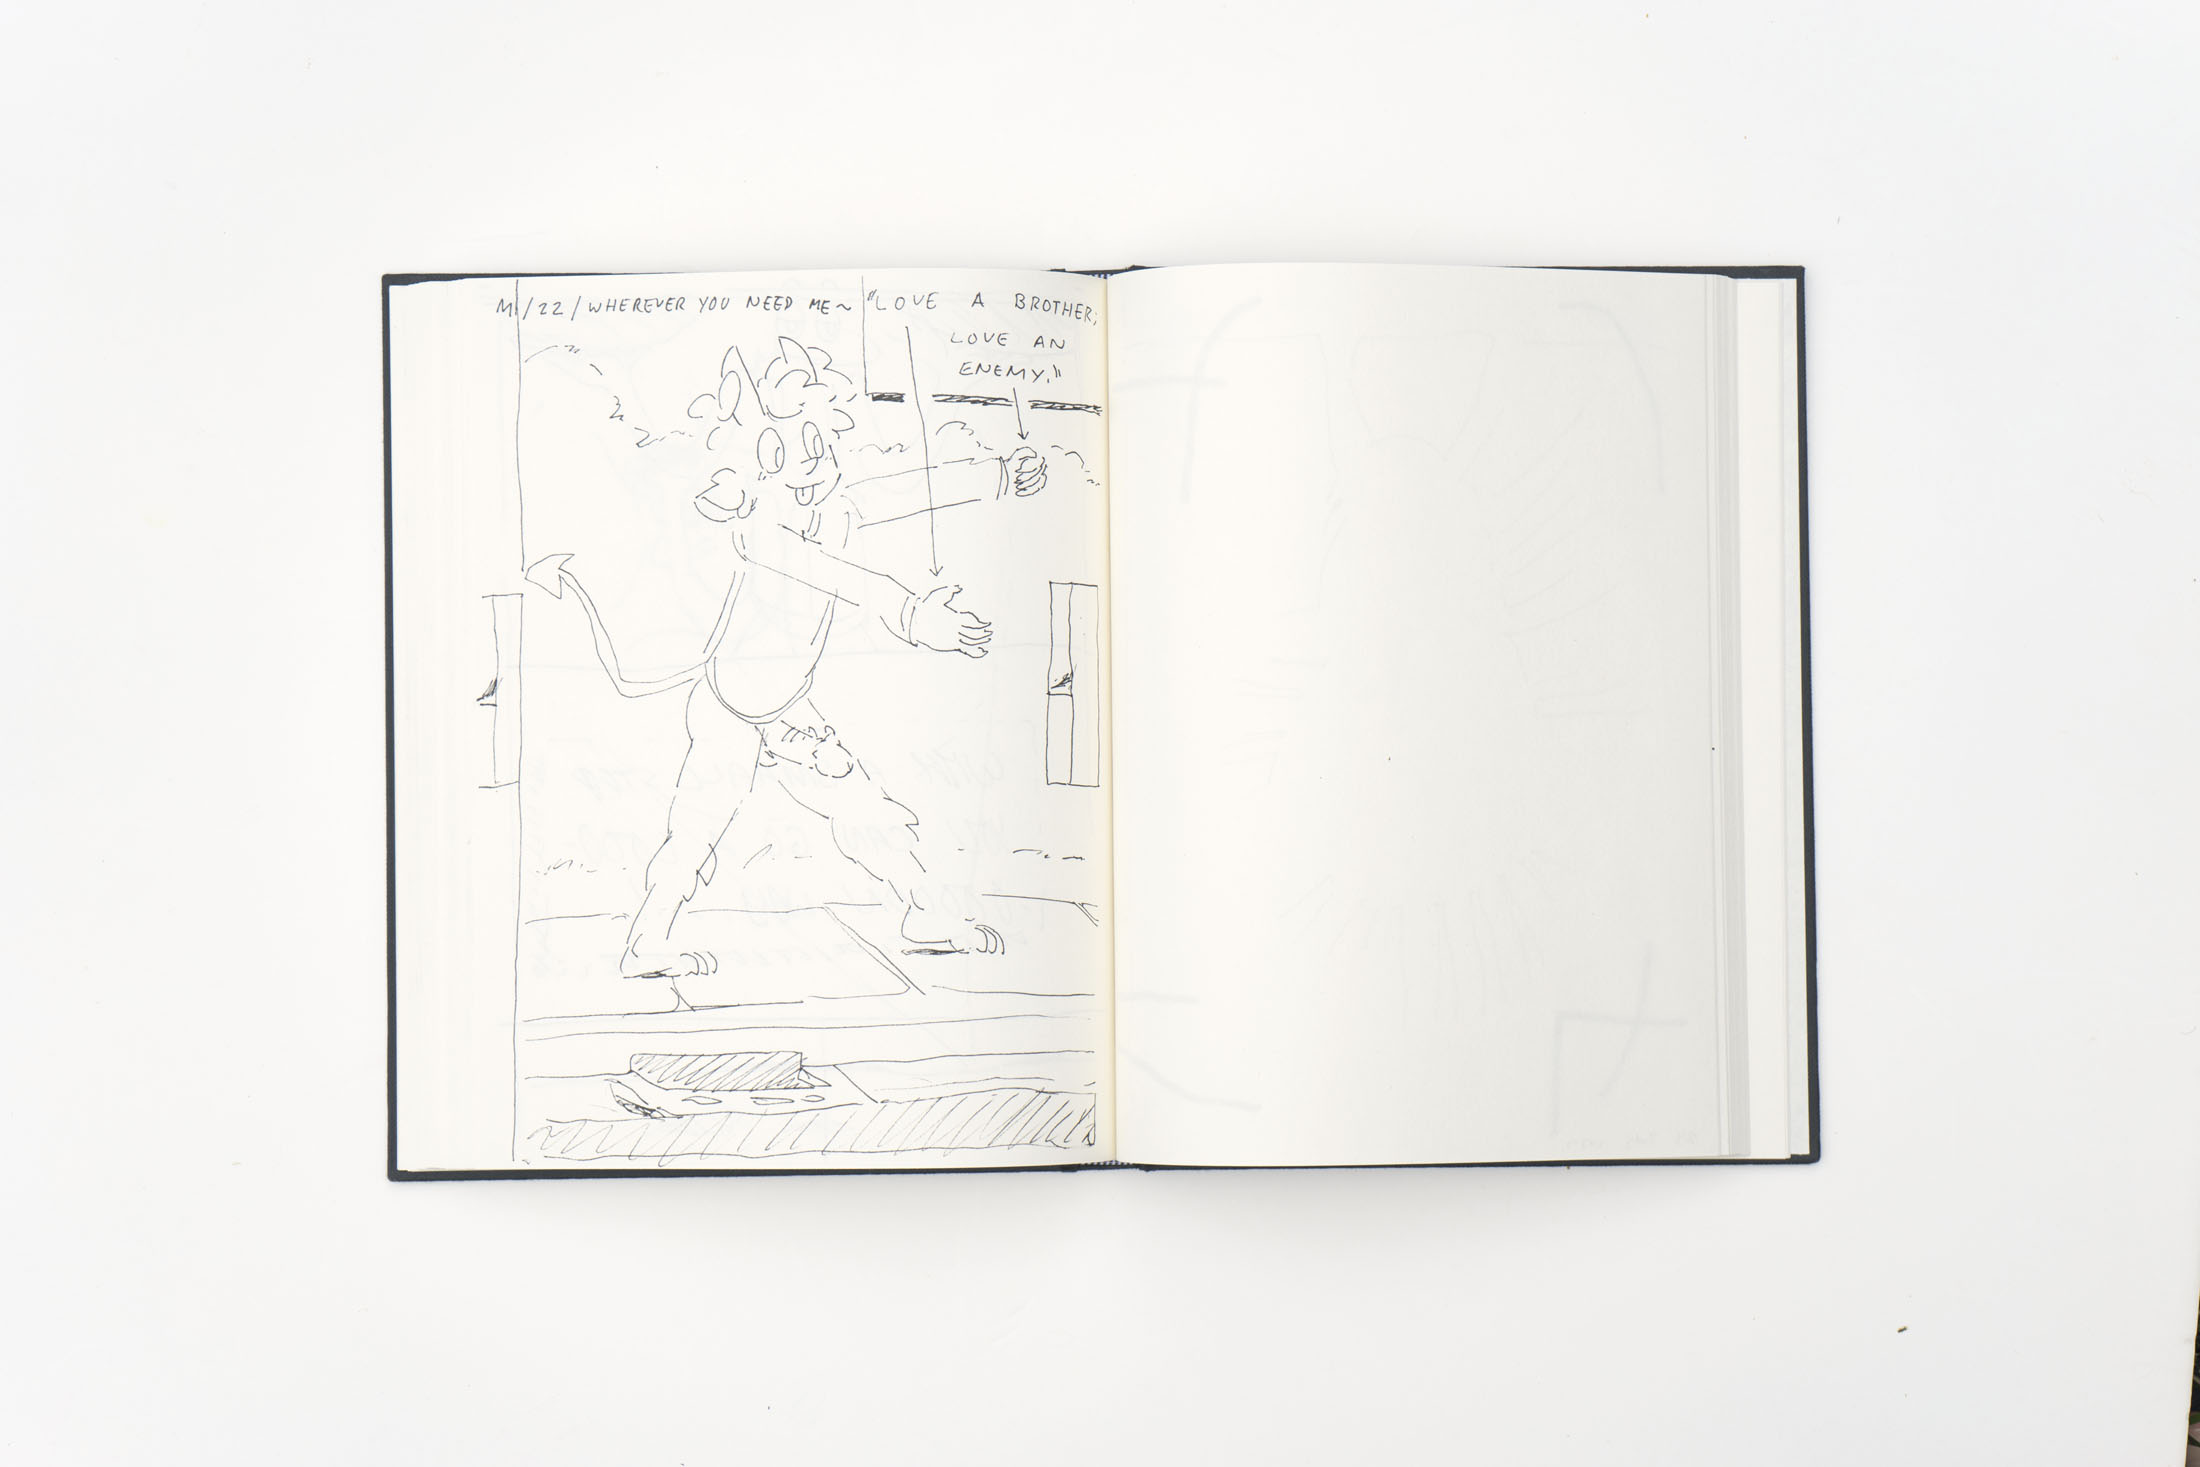 M/22/WHEREVER YOU NEED ME~
"LOVE A BROTHER;
LOVE AN
ENEMY."